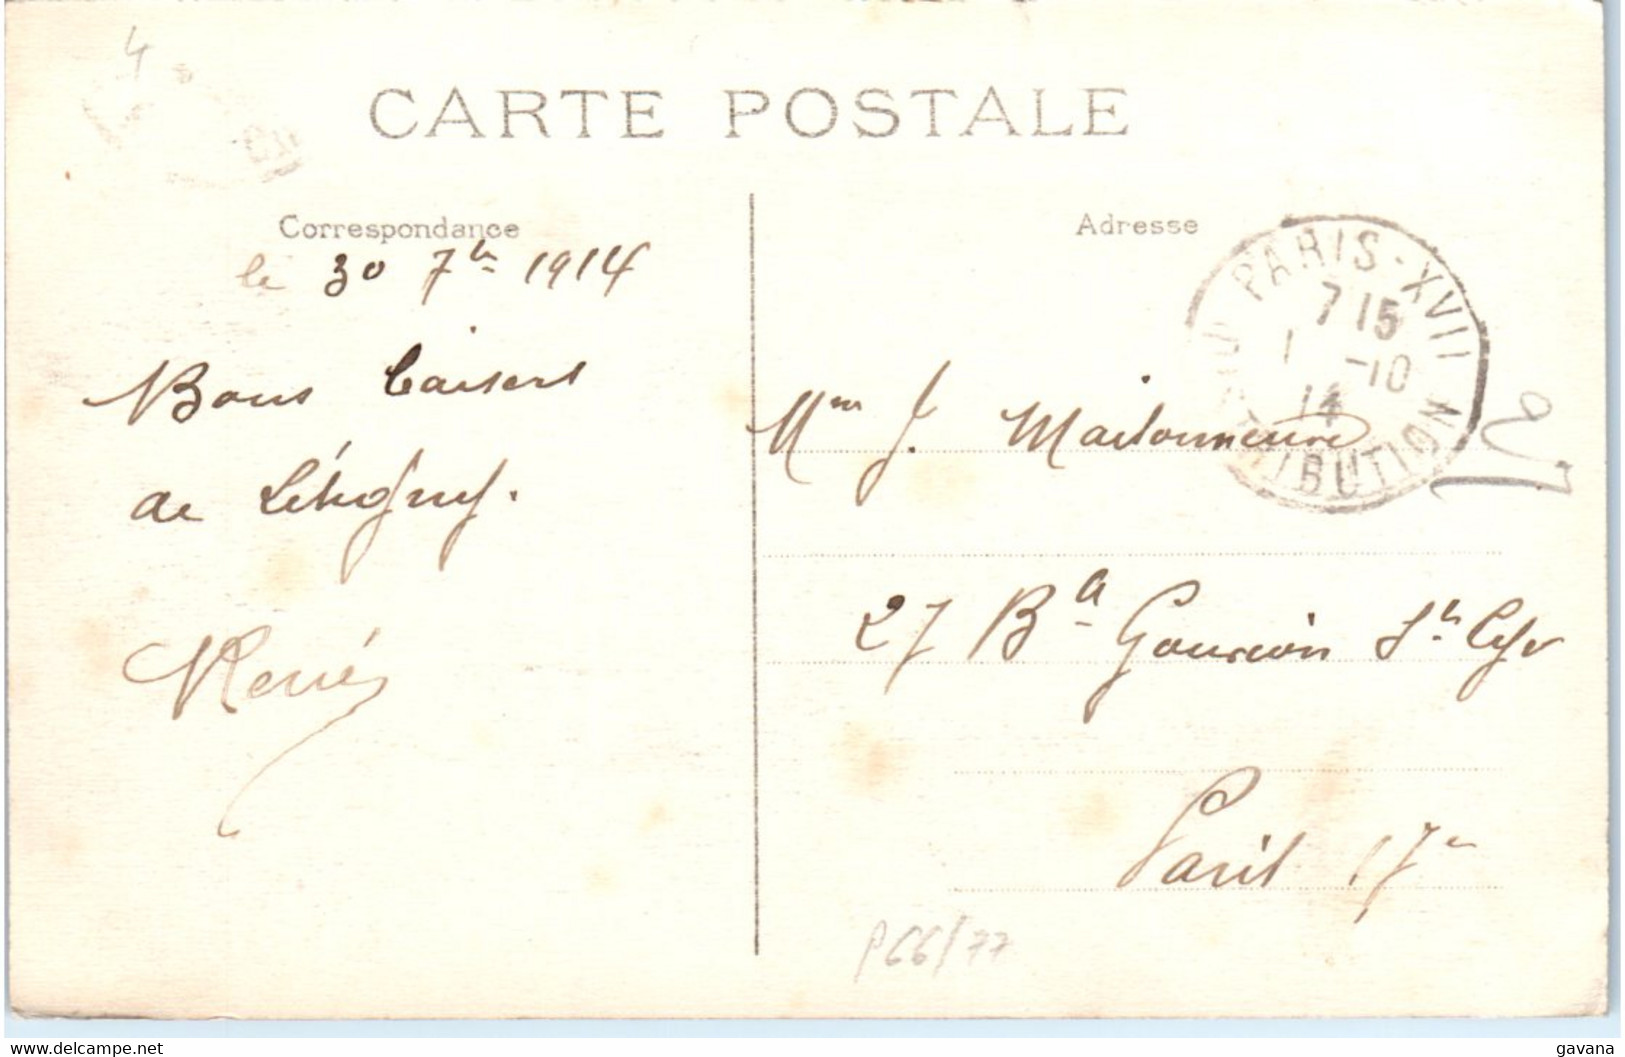 4
CARTE POSTALE
Correspondance
le 30 7bre 1914
Bons baisers
de
René
Adresse
PARIS·XVII
7 15
1 -10
14
DISTRIBUTION
Mme J. Maisonneuve
27 Bd Gouvion St Cyr
Paris 17e
P66/77
gavana